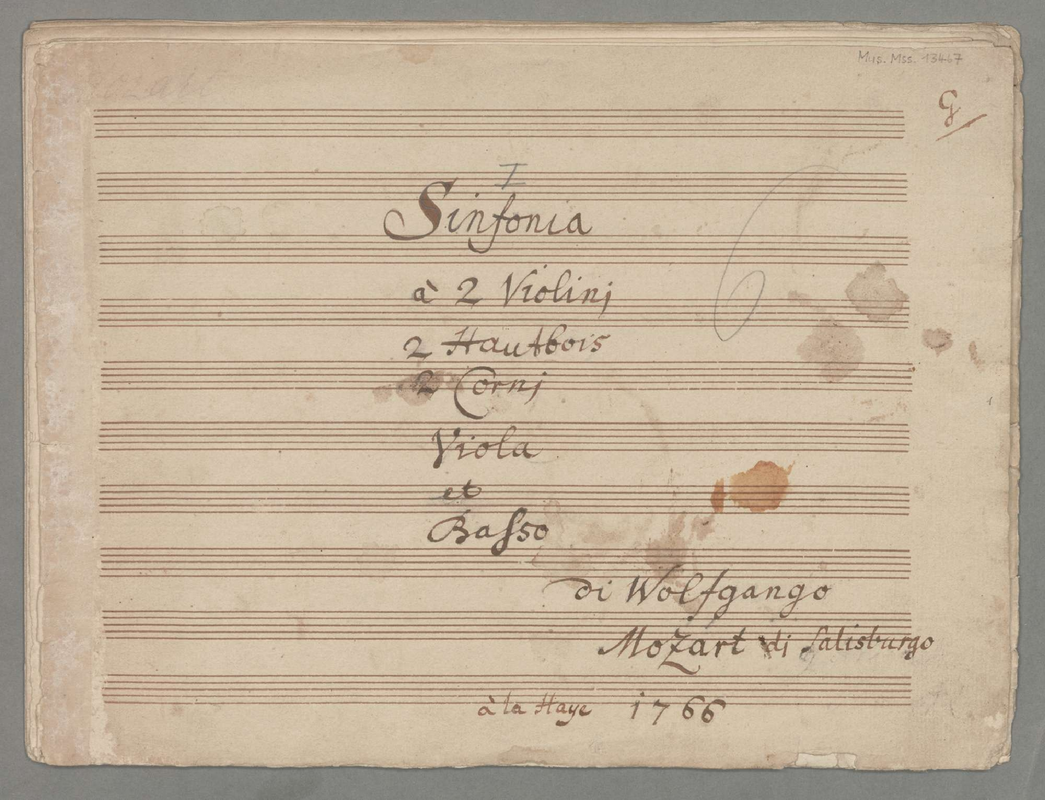 Mus. Mss. 13447
G
I
Sinfonia
à 2 Violinj
2 Hautbois
2 Cornj
Viola
et
Basso
di Wolfgango
Mozart di Salisburgo
à la Haye 1766